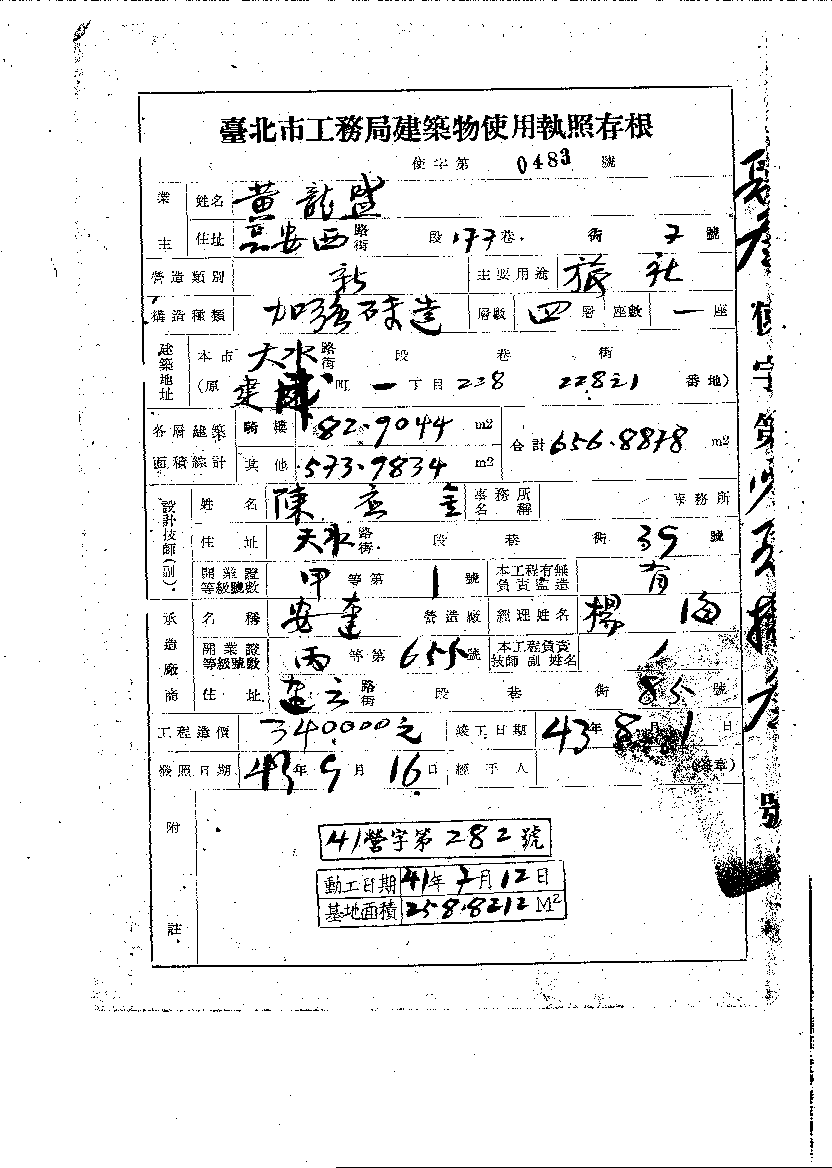 臺北市工務局建築物使用執照存根
使字第 0483 號
業主 姓名 黃龍盛
住址 安西 路街 段 177巷 街 7 號
營造類別 新 主要用途 旅社
構造種類 加強磚造 層數 四層 座數 一座
建築地址 本市 天水 路街 段 巷 街
(原 建 町 一 丁目 238 番地)
各層建築面積綜計 騎樓 82.9044 m2 合計 656.8878 m2
其他 573.9834 m2
設計技師(副) 姓名 陳 金 事務所名稱 事務所
住址 天水 路街 段 巷 街 39 號
開業證等級號數 甲 等第 1 號 本工程有無負責監造 有
承造廠商 名稱 安 營造廠 經理姓名 楊 海
開業證等級號數 丙 等第 655 號 本工程負責技師副姓名
住址 路街 段 巷 街 85 號
工程造價 340000元 竣工日期 43年8月1日
發照日期 43年9月16日 經手人 (蓋章)
附註
41營字第282號
動工日期 41年7月12日
基地面積 258.8212 M²
字第 號